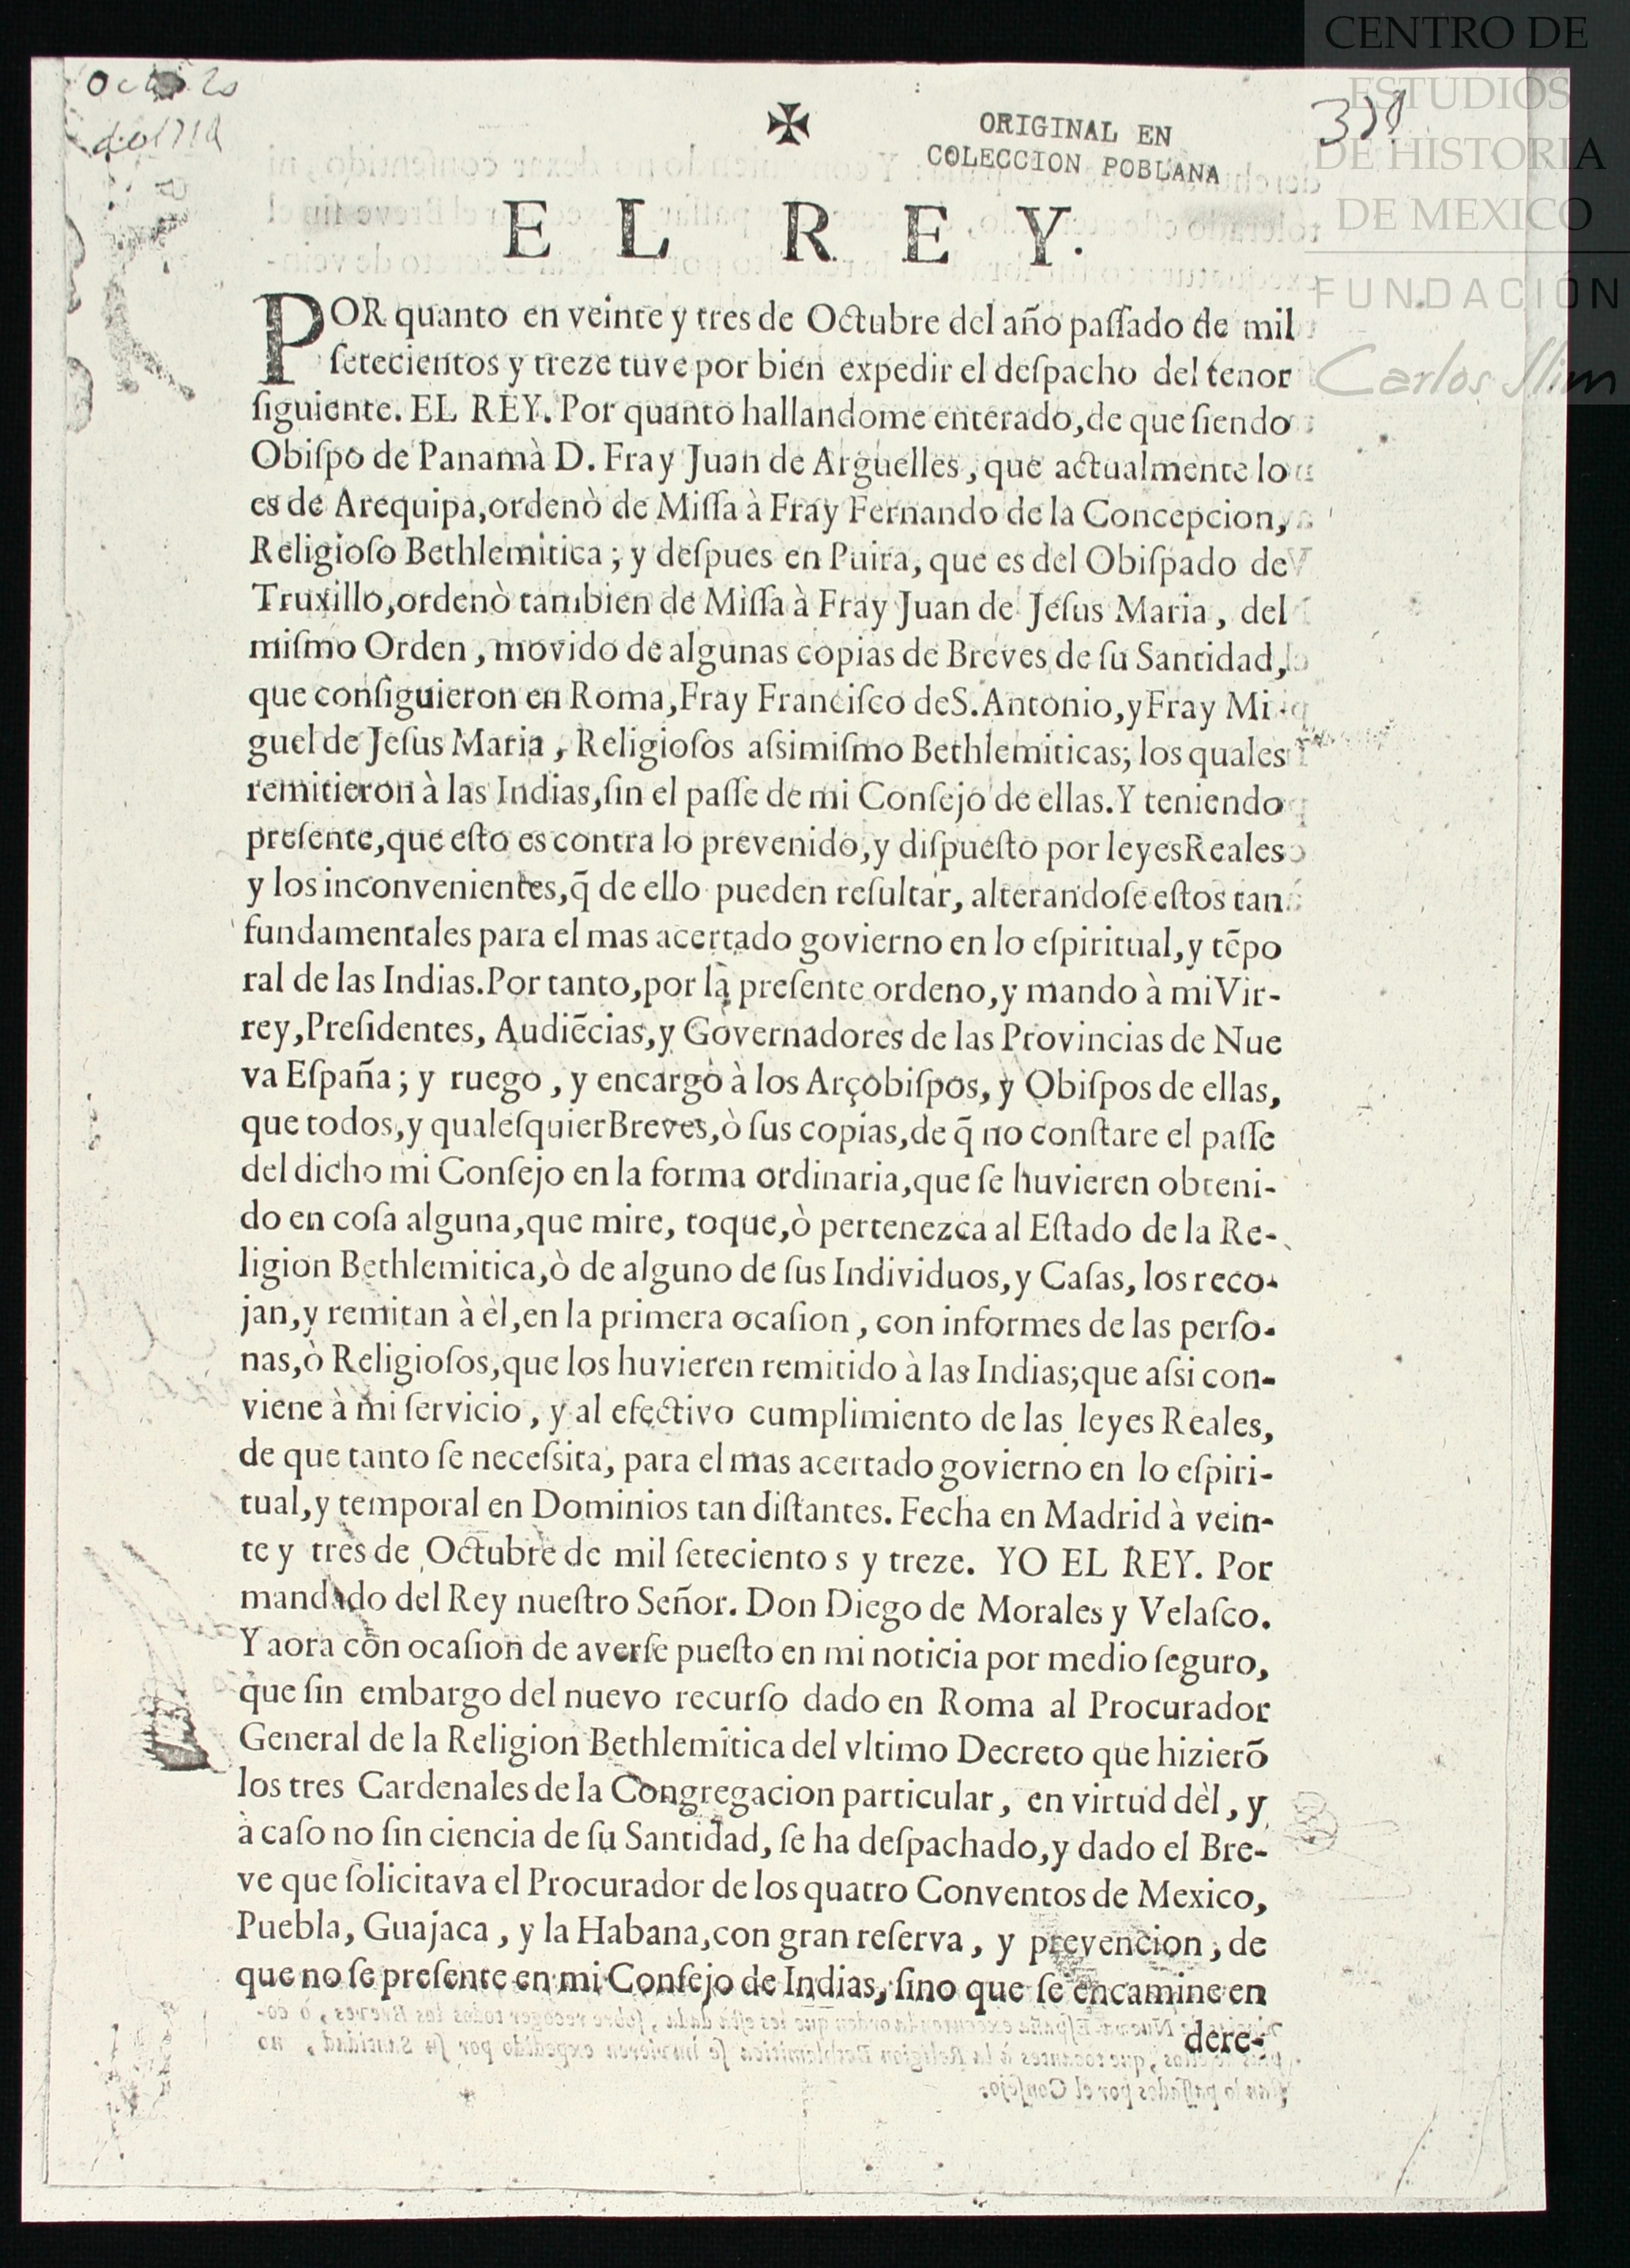 CENTRO DE
ESTUDIOS
DE HISTORIA
DE MEXICO
FUNDACIÓN
Carlos Slim
ORIGINAL EN
COLECCION POBLANA
EL REY.
POR quanto en veinte y tres de Octubre del año paſſado de mil
ſetecientos y treze tuve por bien expedir el deſpacho del tenor
ſiguiente. EL REY. Por quanto hallandome enterado, de que ſiendo
Obiſpo de Panamà D. Fray Juan de Arguelles, que actualmente lo
es de Arequipa, ordenò de Miſſa à Fray Fernando de la Concepcion,
Religioſo Bethlemitica; y deſpues en Puira, que es del Obiſpado de
Truxillo, ordenò tambien de Miſſa à Fray Juan de Jeſus Maria, del
miſmo Orden, movido de algunas copias de Breves de ſu Santidad,
que conſiguieron en Roma, Fray Franciſco de S. Antonio, y Fray Mi-
guel de Jeſus Maria, Religioſos aſsimiſmo Bethlemiticas; los quales
remitieron à las Indias, ſin el paſſe de mi Conſejo de ellas. Y teniendo
preſente, que eſto es contra lo prevenido, y diſpueſto por leyes Reales
y los inconvenientes, q̃ de ello pueden reſultar, alterandoſe eſtos tan
fundamentales para el mas acertado govierno en lo eſpiritual, y tẽpo
ral de las Indias. Por tanto, por la preſente ordeno, y mando à mi Vir-
rey, Preſidentes, Audiẽcias, y Governadores de las Provincias de Nue
va Eſpaña; y ruego, y encargo à los Arçobiſpos, y Obiſpos de ellas,
que todos, y qualeſquier Breves, ò ſus copias, de q̃ no conſtare el paſſe
del dicho mi Conſejo en la forma ordinaria, que ſe huvieren obteni-
do en coſa alguna, que mire, toque, ò pertenezca al Eſtado de la Re-
ligion Bethlemitica, ò de alguno de ſus Individuos, y Caſas, los reco-
jan, y remitan à èl, en la primera ocaſion, con informes de las perſo-
nas, ò Religioſos, que los huvieren remitido à las Indias; que aſsi con-
viene à mi ſervicio, y al efectivo cumplimiento de las leyes Reales,
de que tanto ſe neceſsita, para el mas acertado govierno en lo eſpiri-
tual, y temporal en Dominios tan diſtantes. Fecha en Madrid à vein-
te y tres de Octubre de mil ſetecientos y treze. YO EL REY. Por
mandado del Rey nueſtro Señor. Don Diego de Morales y Velaſco.
Y aora con ocaſion de averſe pueſto en mi noticia por medio ſeguro,
que ſin embargo del nuevo recurſo dado en Roma al Procurador
General de la Religion Bethlemitica del vltimo Decreto que hizierõ
los tres Cardenales de la Congregacion particular, en virtud dèl, y
à caſo no ſin ciencia de ſu Santidad, ſe ha deſpachado, y dado el Bre-
ve que ſolicitava el Procurador de los quatro Conventos de Mexico,
Puebla, Guajaca, y la Habana, con gran reſerva, y prevencion, de
que no ſe preſente en mi Conſejo de Indias, ſino que ſe encamine en
dere-